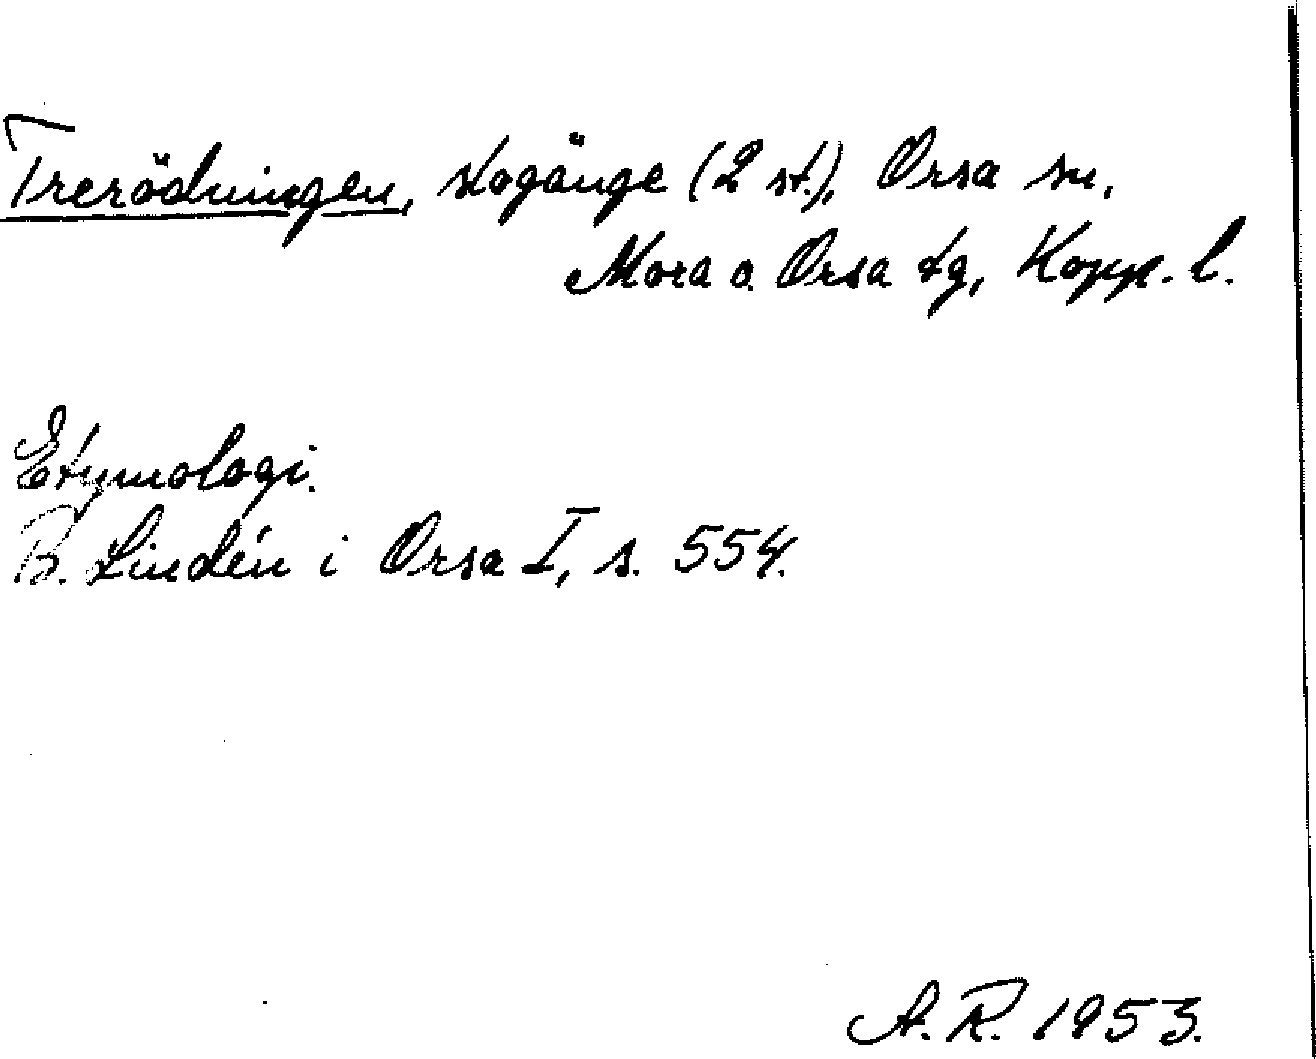 Trerödningen, skogänge (2 st.), Orsa sn.
Mora o. Orsa tg, Kopp. l.
Etymologi.
B. Lindén i Orsa I, s. 554.
A.R. 1953.